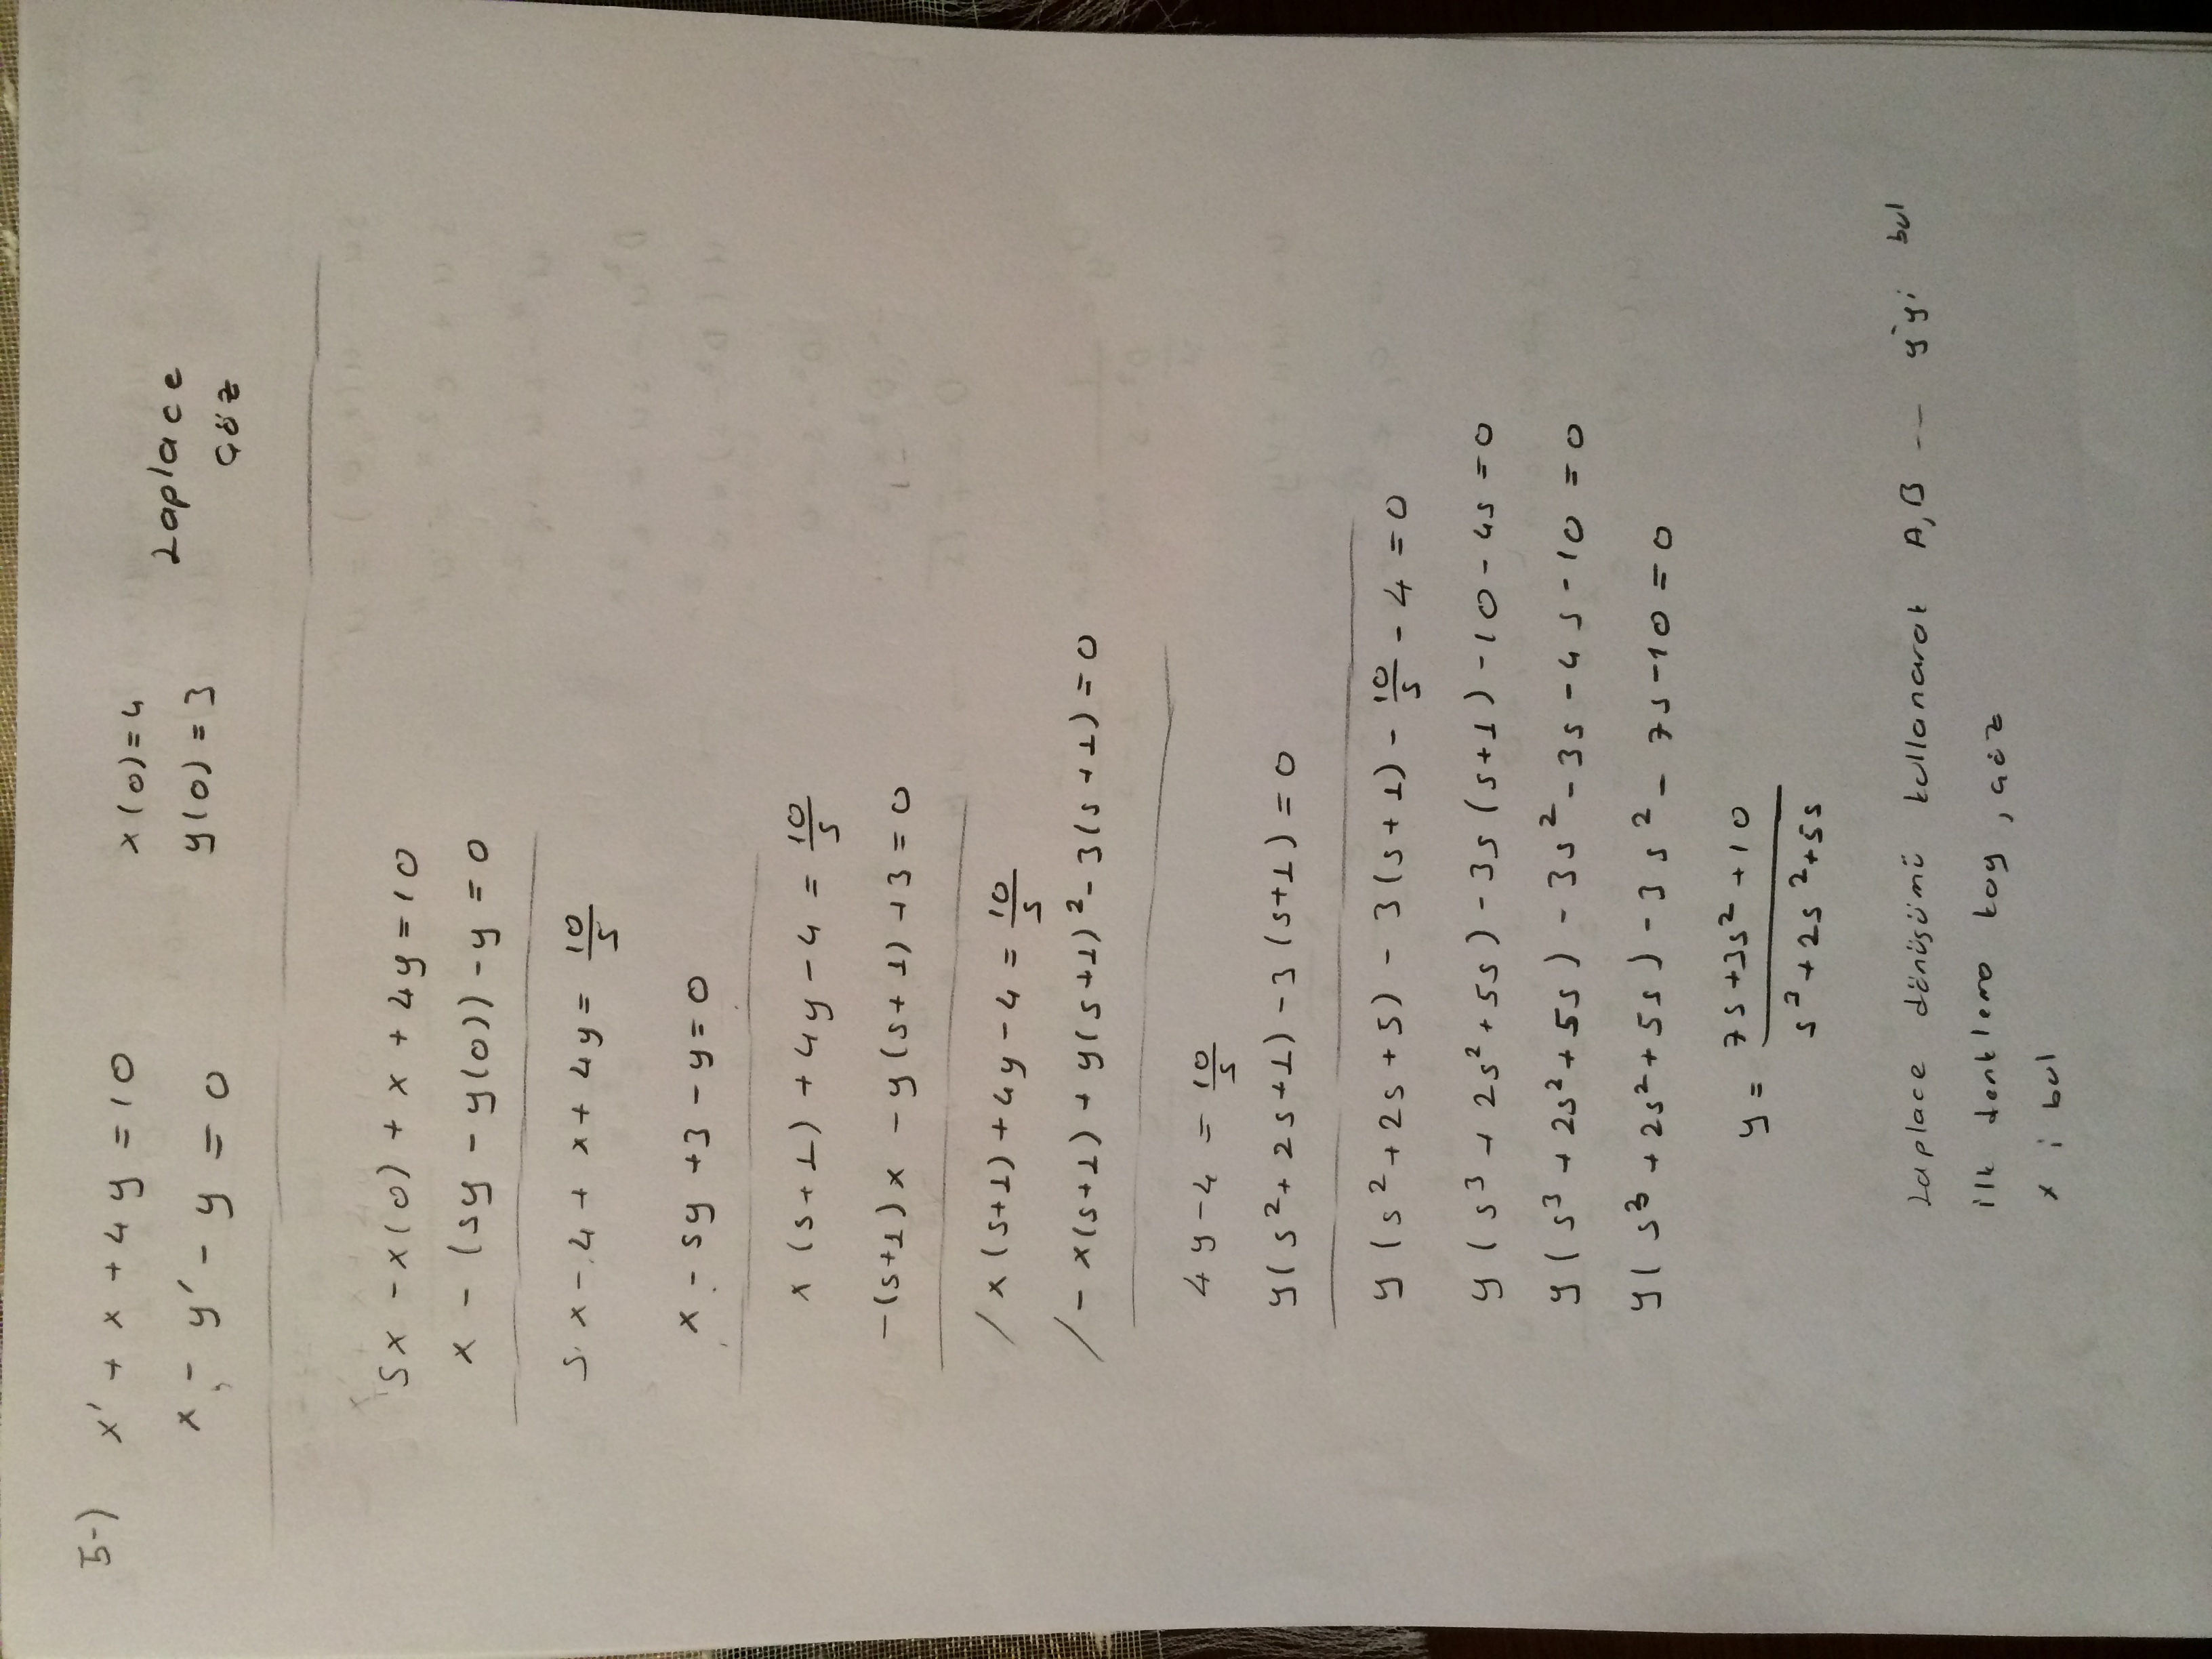 5-) x' + x + 4y = 10    x(0) = 4    Laplace
x - y' - y = 0    y(0) = 3    çöz
sx - x(0) + x + 4y = 10
x - (sy - y(0)) - y = 0
s.x - 4 + x + 4y = 10/s
x - sy + 3 - y = 0
x(s+1) + 4y - 4 = 10/s
-(s+1)x - y(s+1) + 3 = 0
/ x(s+1) + 4y - 4 = 10/s
/ - x(s+1) + y(s+1)² - 3(s+1) = 0
4y - 4 = 10/s
y(s² + 2s + 1) - 3(s+1) = 0
y(s² + 2s + 5) - 3(s+1) - 10/s - 4 = 0
y(s³ + 2s² + 5s) - 3s(s+1) - 10 - 4s = 0
y(s³ + 2s² + 5s) - 3s² - 3s - 4s - 10 = 0
y(s³ + 2s² + 5s) - 3s² - 7s - 10 = 0
y = (7s + 3s² + 10)/(s³ + 2s² + 5s)
Laplace dönüşümü kullanarak A,B -- y'yi bul
ilk denklemo koy, çöz
x i bul